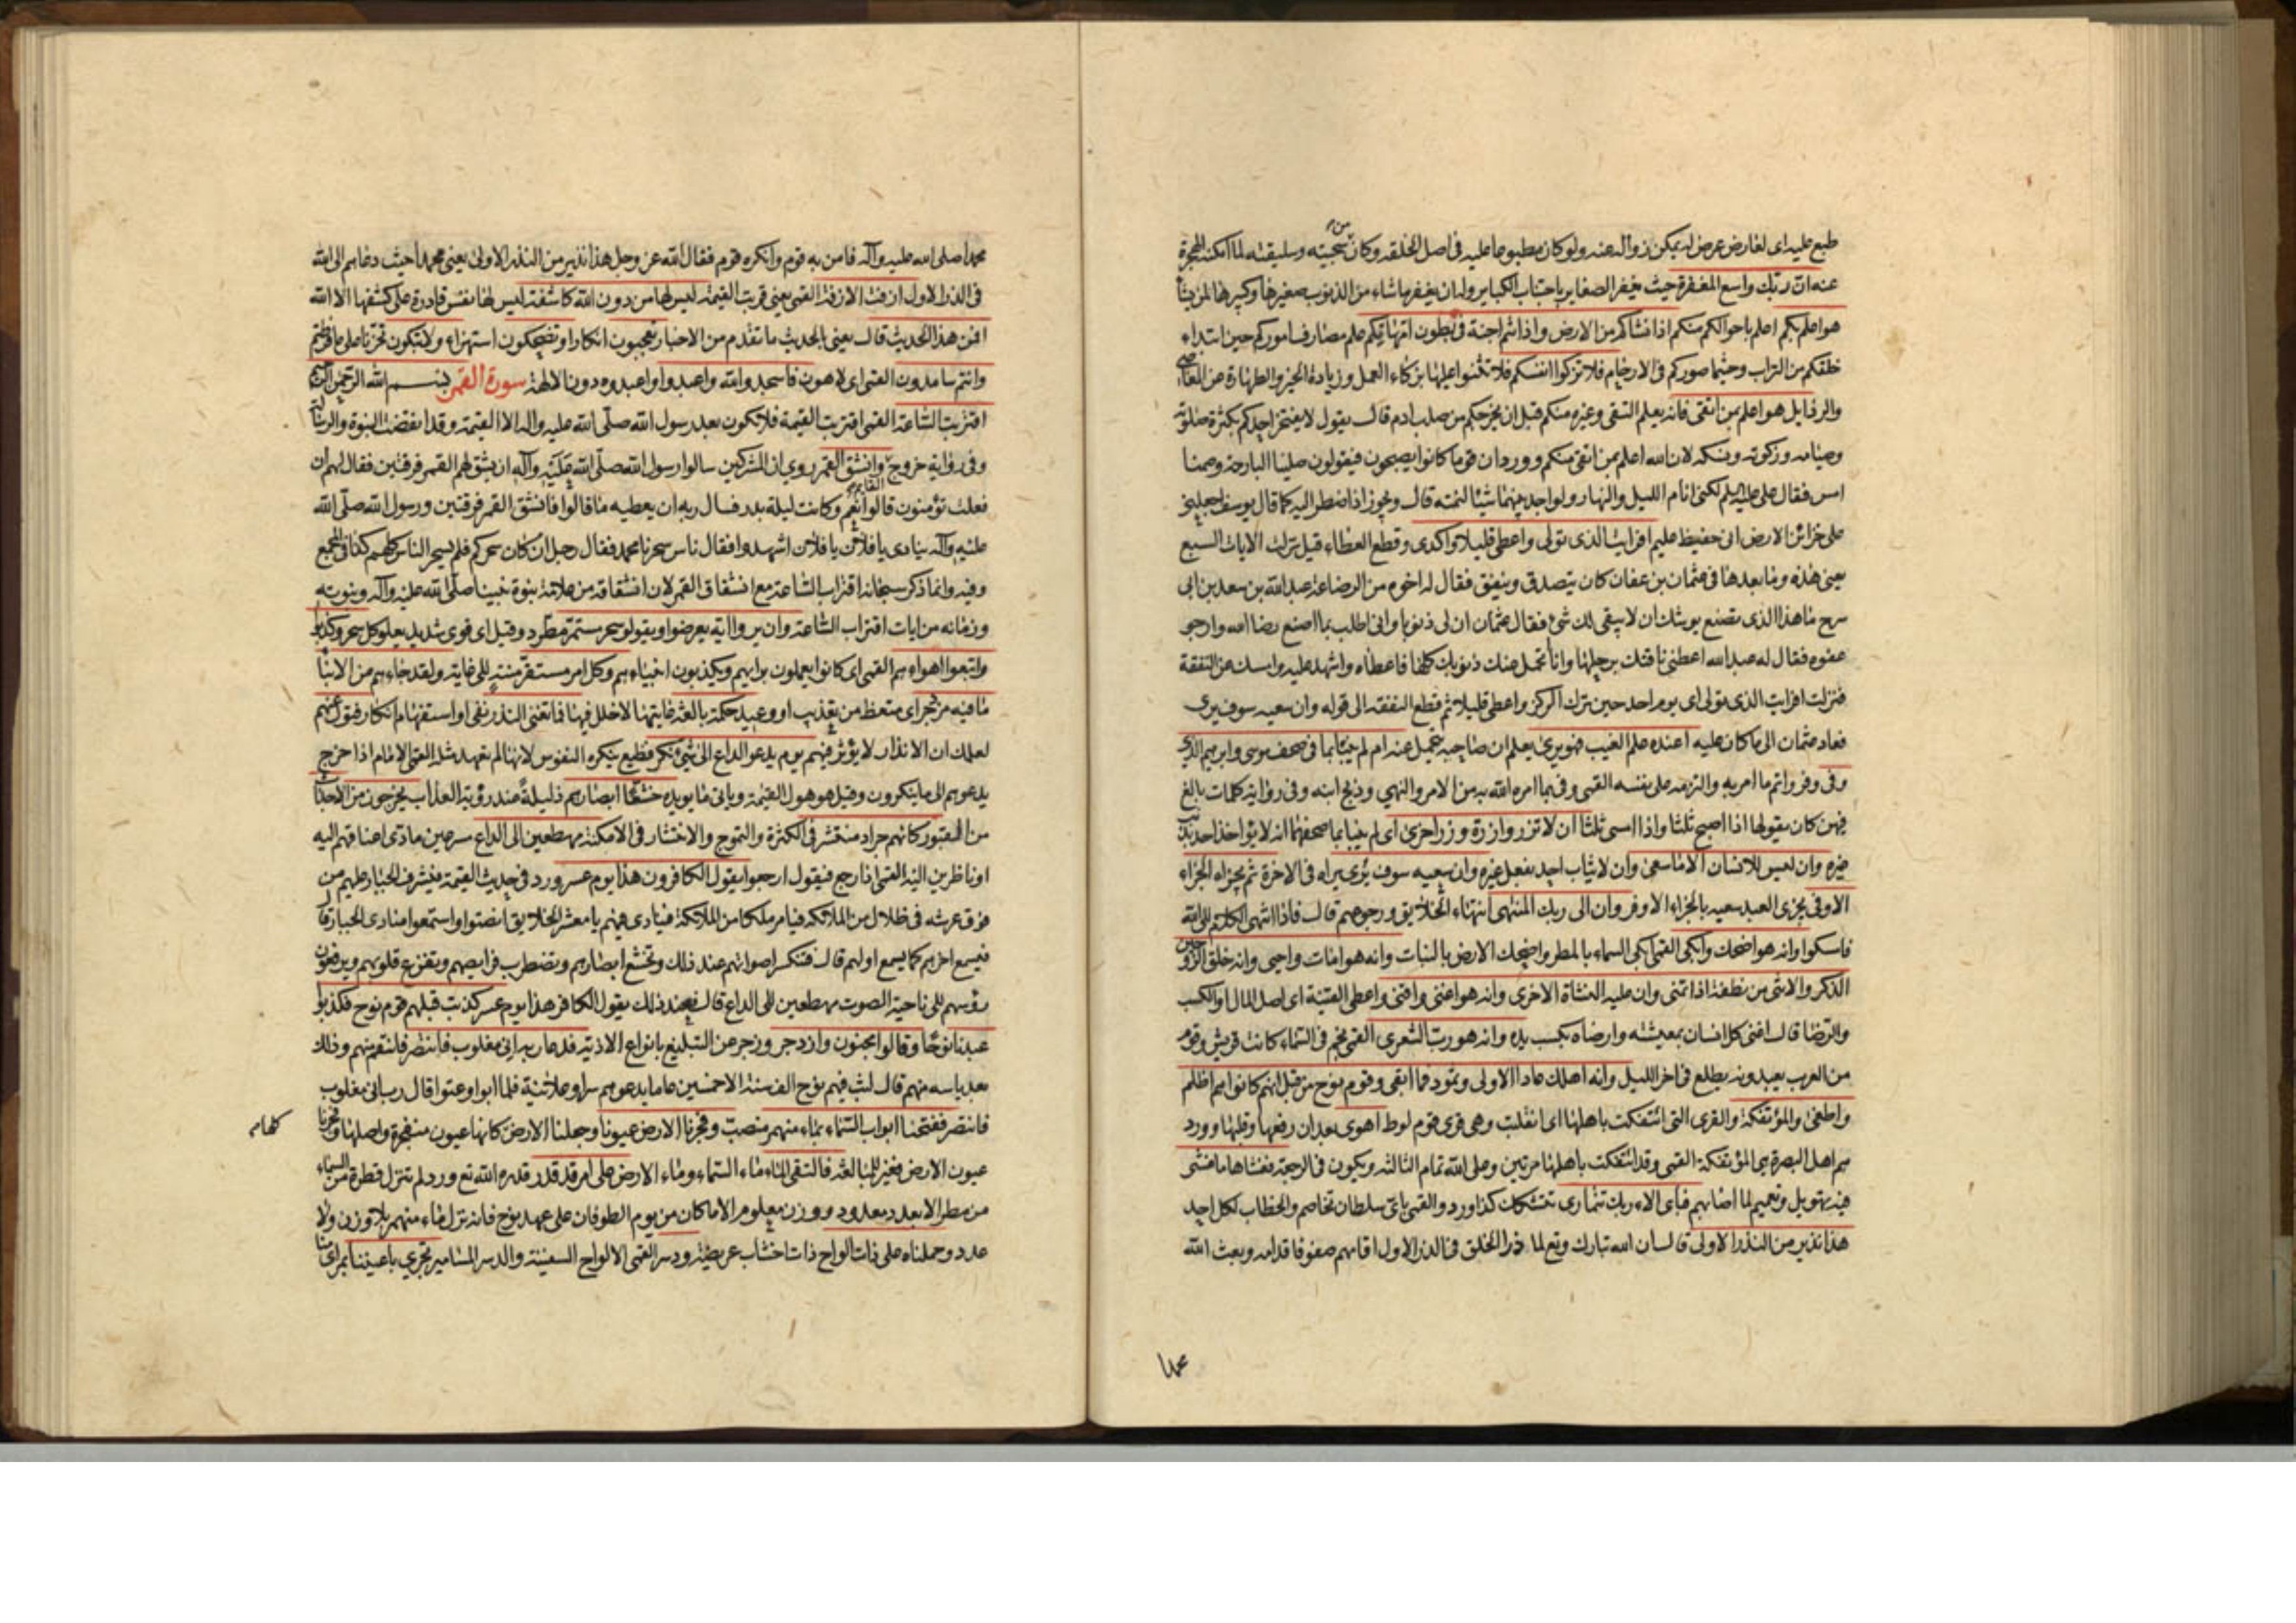 طبع عليه اى لعارض عرض له يمكن زواله عنه ولو كان مطبوعا عليه فى اصل الخلقه وكان من سجيته وسليقته لما امكنه الهجرة
عنه ان ربك واسع المغفرة حيث يغفر الصغاير باجتناب الكباير وله ان يغفر ما شاء من الذنوب صغيرها وكبيرها لمن يشاء
هو اعلم بكم اعلم باحوالكم منكم اذ انشاكم من الارض واذ انتم اجنة فى بطون امهاتكم علم مصارف اموركم حين ابتداء
خلقكم من التراب وحيثما صوركم فى الارحام فلا تزكوا انفسكم فلا تثنوا عليها بزكاء العمل وزيادة الخير والطهارة عن المعاصى
والرذايل هو اعلم بمن اتقى فانه يعلم التقى وغيره منكم قبل ان يخرجكم من صلب ادم قال يقول لا يفتخر احدكم بكثرة صلوته
وصيامه وزكوته ونسكه لان الله اعلم بمن اتقى منكم وورد ان قوما كانوا يصبحون فيقولون صلينا البارحة وصمنا
امس فقال على عليه السلم لكنى انام الليل والنهار ولو اجد بينهما شيئا لنمته قال ويجوز اذا اضطر اليه كما قال يوسف اجعلنى
على خزائن الارض انى حفيظ عليم افرايت الذى تولى واعطى قليلا واكدى وقطع العطاء قيل نزلت الايات السبع
يعنى هذه وما بعدها فى عثمان بن عفان كان يتصدق وينفق فقال له اخوه من الرضاعة عبد الله بن سعد بن ابى
سرح ما هذا الذى تصنع يوشك ان لا يبقى لك شئ فقال عثمان ان لى ذنوبا وانى اطلب بما اصنع رضا الله وارجو
عفوه فقال له عبد الله اعطنى ناقتك برحلها وانا اتحمل عنك ذنوبك كلها فاعطاه واشهد عليه وامسك عن النفقة
فنزلت افرايت الذى تولى اى يوم احد حين ترك المركز واعطى قليلا ثم قطع النفقة الى قوله وان سعيه سوف يرى
فعاد عثمان الى ما كان عليه اعنده علم الغيب فهو يرى يعلم ان صاحبه يتحمل عنه ام لم ينبا بما فى صحف موسى وابرهيم الذى
وفى وفر واتم ما امر به والتزمه على نفسه القمى وفى بما امره الله به من الامر والنهى وذبح ابنه وفى رواية كلمات بالغ
فيهن كان يقولها اذا اصبح ثلثا واذا امسى ثلثا ان لا تزر وازرة وزر اخرى اى لم ينبا بما صحفهما انه لا يؤاخذ احد بذنب
غيره وان ليس للانسان الا ما سعى وان لا يثاب احد بفعل غيره وان سعيه سوف يرى يراه فى الاخرة ثم يجزاه الجزاء
الاوفى يجزى العبد سعيه بالجزاء الاوفر وان الى ربك المنتهى انتهاء الخلايق ورجوعهم قال فاذا انتهى الكلام الى الله
فامسكوا وانه هو اضحك وابكى القمى ابكى السماء بالمطر واضحك الارض بالنبات وانه هو امات واحيى وانه خلق الزوجين
الذكر والانثى من نطفة اذا تمنى وان عليه النشاة الاخرى وانه هو اغنى واقنى واعطى القنية اى اصل المال والكسب
والرضا قال اغنى كل انسان بمعيشته وارضاه بكسب يده وانه هو رب الشعرى القمى نجم فى السماء كانت قريش وقوم
من العرب يعبدونه يطلع فى اخر الليل وانه اهلك عادا الاولى وثمود فما ابقى وقوم نوح من قبل انهم كانوا هم اظلم
واطغى والمؤتفكة والقرى التى ائتفكت باهلها اى انقلبت وهى قرى قوم لوط اهوى بعد ان رفعها وقلبها وورد
هم اهل البصرة هى المؤتفكة القمى وقد ائتفكت باهلها مرتين وعلى الله تمام الثالثة ويكون فى الرجعة فغشاها ما غشى
فيه تهويل وتعميم لما اصابهم فباى الاء ربك تتمارى تتشكك كذا ورد والقمى باى سلطان تخاصم والخطاب لكل احد
هذا نذير من النذر الاولى قال ان الله تبارك وتع لما ذرا الخلق فى الذر الاول اقامهم صفوفا قدامه وبعث الله
محمدا
محمدا صلى الله عليه وآله فامن به قوم وانكره قوم فقال الله عز وجل هذا نذير من النذر الاولى يعنى محمدا حيث دعاهم الى الله
فى الذر الاول ازفت الازفة القمى يعنى قربت القيمة ليس لها من دون الله كاشفة ليس لها نفس قادرة على كشفها الا الله
افمن هذا الحديث قال يعنى بالحديث ما تقدم من الاخبار تعجبون انكارا وتضحكون استهزاء ولا تبكون تحزنا على ما فرطتم
وانتم سامدون القمى اى لاهون فاسجدوا لله واعبدوا واعبدوه دون الالهة سورة القمر بسم الله الرحمن الرحيم
اقتربت الساعة القمى اقتربت القيمة فلا تكون بعد رسول الله صلى الله عليه واله الا القيمة وقد انقضت النبوة والرسالة
وفى رواية خروج القايم وانشق القمر روى ان المشركين سالوا رسول الله صلى الله عليه وآله ان يشق لهم القمر فرقتين فقال لهم ان
فعلت تؤمنون قالوا نعم وكانت ليلة بدر فسال ربه ان يعطيه ما قالوا فانشق القمر فرقتين ورسول الله صلى الله
عليه وآله ينادى يا فلان يا فلان اشهدوا فقال ناس سحرنا محمد فقال رجل ان كان سحركم فلم يسحر الناس كلهم كذا فى المجمع
وفيه وانما ذكر سبحانه اقتراب الساعة مع انشقاق القمر لان انشقاقه من علامة نبوة نبينا صلى الله عليه وآله ونبوته
وزمانه من ايات اقتراب الساعة وان يروا اية يعرضوا ويقولو سحر مستمر مطرد وقيل اى قوى شديد يعلو كل سحر وكذبوا
واتبعوا اهواءهم القمى اى كانوا يعملون برايهم ويكذبون انبياءهم وكل امر مستقر منته الى غاية ولقد جاءهم من الانباء
ما فيه مزدجر اى متعظ من تعذيب او وعيد حكمة بالغة غايتها لا خلل فيها فما تغنى النذر نفى او استفهام انكار فتول عنهم
لعلمك ان الانذار لا يؤثر فيهم يوم يدعو الداع الى شئ نكر فظيع ينكره النفوس لانها لم تعهد مثله القمى الامام اذا خرج
يدعوهم الى ما ينكرون وقيل هو هول القيمة وياتى ما يويده خشعا ابصارهم ذليلة عند رؤية العذاب يخرجون من الاجداث
من القبور كانهم جراد منتشر فى الكثرة والتموج والانتشار فى الامكنة مهطعين الى الداع سرعين مادى اعناقهم اليه
او ناظرين اليه القمى اذا رجع فيقول ارجعوا يقول الكافرون هذا يوم عسر ورد فى حديث القيمة فيشرف الجبار عليهم من
فوق عرشه فى ظلال من الملائكة فيامر ملكا من الملائكة فينادى فيهم يا معشر الخلايق انصتوا واستمعوا منادى الجبار قال
فيسمع اخرهم كما يسمع اولهم قال فتنكسر اصواتهم عند ذلك وتخشع ابصارهم وتضطرب فرايصهم وتفزع قلوبهم ويرفعون
رؤسهم الى ناحية الصوت مهطعين الى الداع قال فعند ذلك يقول الكافر هذا يوم عسر كذبت قبلهم قوم نوح فكذبوا
عبدنا نوحا وقالوا مجنون وازدجر وزجر عن التبليغ بانواع الاذية فدعا ربه انى مغلوب فانتصر فانتقم منهم وذلك
بعد ياسه منهم قال لبث فيهم نوح الف سنة الا خمسين عاما يدعوهم سرا وعلانية فلما ابوا وعتوا قال رب انى مغلوب
فانتصر ففتحنا ابواب السماء بماء منهمر منصب وفجرنا الارض عيونا وجعلنا الارض كانها عيون منفجرة واصلها وفجرنا
عيون الارض فغير للمبالغة فالتقى الماء ماء السماء وماء الارض على امر قد قدر قدره الله تع وورد لم تنزل قطرة من السماء
من مطر الا بعدد معدود ووزن معلوم الا ما كان من يوم الطوفان على عهد نوح فانه نزل ماء منهمر بلا وزن ولا
عدد وحملناه على ذات الواح ذات اخشاب عريضة ودسر القمى الالواح السفينة والدسر المسامير تجرى باعيننا بمراى منا